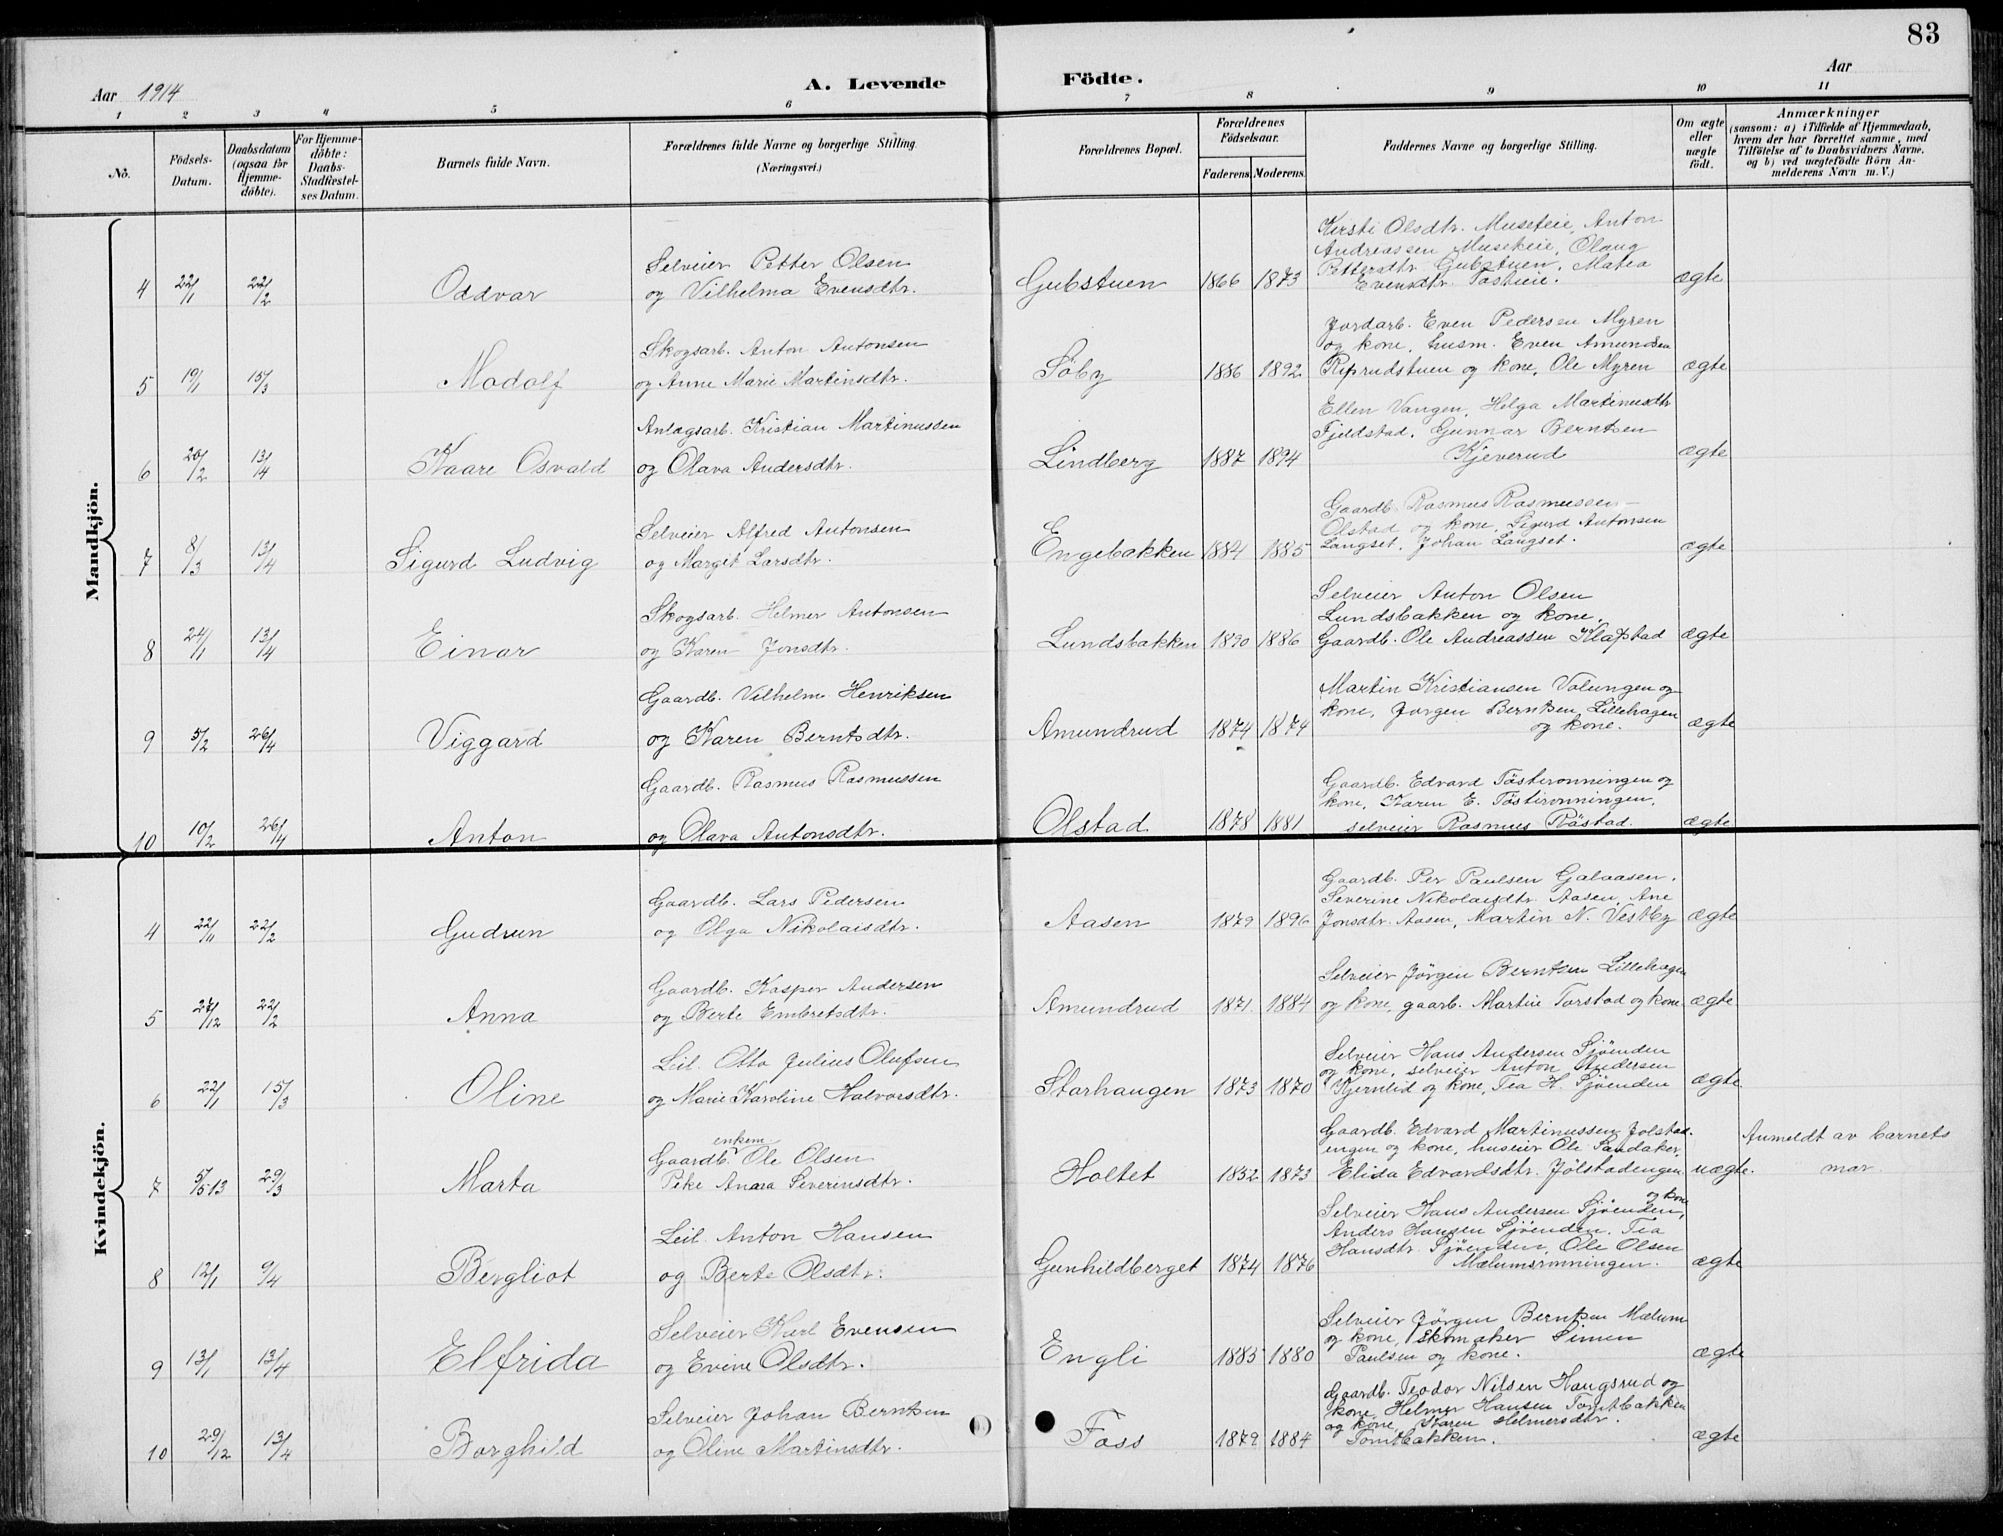 83
Aar 1914
A. Levende
Födte.
Aar
1 2 3 4 5 6 7 8 9 10 11
No.
Födsels-Datum.
Daabsdatum (ogsaa for Hjemme-döbte).
For Hjemme-döbte: Daabs-Stadfæstel-ses Datum.
Barnets fulde Navn.
Forældrenes fulde Navne og borgerlige Stilling (Næringsvei.)
Forældrenes Bopæl.
Forældrenes Födselsaar.
Faderens. Moderens.
Faddernes Navne og borgerlige Stilling.
Om ægte eller uægte födt.
Anmærkninger
(saasom: a) i Tilfælde af Hjemmedaab,
hvem der har forrettet samme, med
Tilföielse af to Daabsvidners Navne,
og b) ved uægtefödte Börn An-
melderens Navn m. V.)
Mandkjön.
Kirsti Olsdtr. Museteie, Anton
Andreassen Musekeie, Olaug
Selveier Petter Olsen Pettersdtr. Gubstuen, Matea
4 22/1 22/2 Oddvar og Vilhelma Evensdtr. Gubstuen 1866 1873 Evensdtr. Tøstieie. ægte
Jordarb. Even Pedersen Myren
Skogsarb. Anton Antonsen og kone, husm. Even Amundsen
5 19/1 15/3 Modolf og Anne Marie Martinsdtr. Søby 1886 1892 Riprudstuen og kone, Ole Myren ægte
Ellen Vangen, Helga Martinusdtr
Anlægsarb. Kristian Martinussen Fjeldstad, Gunnar Berntsen
6 20/2 13/4 Kaare Osvald og Olava Andersdtr. Lindberg 1887 1894 Kjeverud ægte
Gaardb. Rasmus Rasmussen
Selveier Alfred Antonsen Olstad og kone, Sigurd Antonsen
7 8/3 13/4 Sigurd Ludvig og Margit Larsdtr. Engebakken 1884 1885 Langset, Johan Langset. ægte
Selveier Anton Olsen
Skogsarb. Helmer Antonsen Lundsbakken og kone,
8 24/1 13/4 Einar og Karen Jonsdtr. Lundsbakken 1890 1886 Gaardb. Ole Andreassen Klapstad ægte
Martin Kristiansen Volungen og
Gaardb. Vilhelm Henriksen kone, Jørgen Berntsen, Lillehagen
9 5/2 26/4 Viggard og Karen Berntsdtr. Amundrud 1874 1874 og kone. ægte
Gaardb. Edvard Tøstirønningen og
Gaardb. Rasmus Rasmussen kone, Karen E. Tøstirønningen,
10 10/2 26/4 Anton og Olava Antonsdtr. Olstad 1878 1881 selveier Rasmus Røstad. ægte
Kvindekjön.
Gaardb. Per Paulsen Galaasen,
Gaardb. Lars Pedersen Severine Nikolaisdtr. Aasen, Ane
4 22/11 22/2 Gudrun og Olga Nikolaisdtr. Aasen 1879 1896 Jonsdtr. Aasen, Martin N. Vestby ægte
Gaardb. Kasper Andersen Selveier Jørgen Berntsen Lillehagen
5 27/12 22/2 Anna og Berte Embretsdtr. Amundrud 1871. 1884 og kone, gaarb. Martin Torstad og kone ægte
Selveier Hans Andersen Sjøenden
Leil. Otto Julius Olufsen og kone, selveier Anton Andersen
6 22/1 15/3 Oline og Marie Karoline Halvorsdtr. Storhaugen 1873 1870 Kjernlid og kone, Tea H. Sjøenden ægte
enkem. Gaardb. Edvard Martinussen Jolstad-
Gaardb. Ole Olsen engen og kone, huseier Ole Sandaker Anmeldt av barnets
7 5/5 13 29/3 Marta Pike Anna Severinsdtr. Holtet 1852 1873 Elida Edvardsdtr. Jølstadengen uægte. mor
og kone
Selveier Hans Andersen Sjøenden,
Anders Hansen Sjøenden, Tea
Leil. Anton Hansen Hansdtr. Sjøenden, Ole Olsen
8 12/1 9/4 Bergliot og Berte Olsdtr. Gunhildberget 1874 1876 Mælumsrønningen. ægte
Selveier Jørgen Berntsen Mælum
Selveier Karl Evensen og kone, skomaker Simen
9 13/1 13/4 Elfrida og Evine Olsdtr. Engli 1885 1880 Paulsen og kone. ægte
Gaardb. Teodor Nilsen Haugsrud og
kone, Helmer Hansen Tomtbakken
Selveier Johan Berntsen og kone, Karen Helmersdtr.
10 29/12 13/4 Borghild og Oline Martinsdtr. Foss 1879 1884 Tomtbakken. ægte